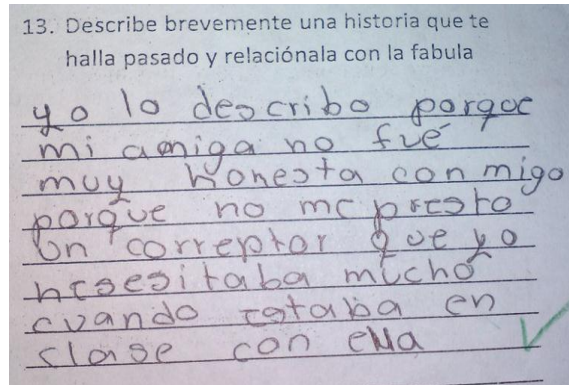 13. Describe brevemente una historia que te
halla pasado y relaciónala con la fabula
yo lo describo porque
mi amiga no fué
muy honesta con migo
porque no me presto
un correptor que yo
nesesitaba mucho
cuando estaba en
clase con ella